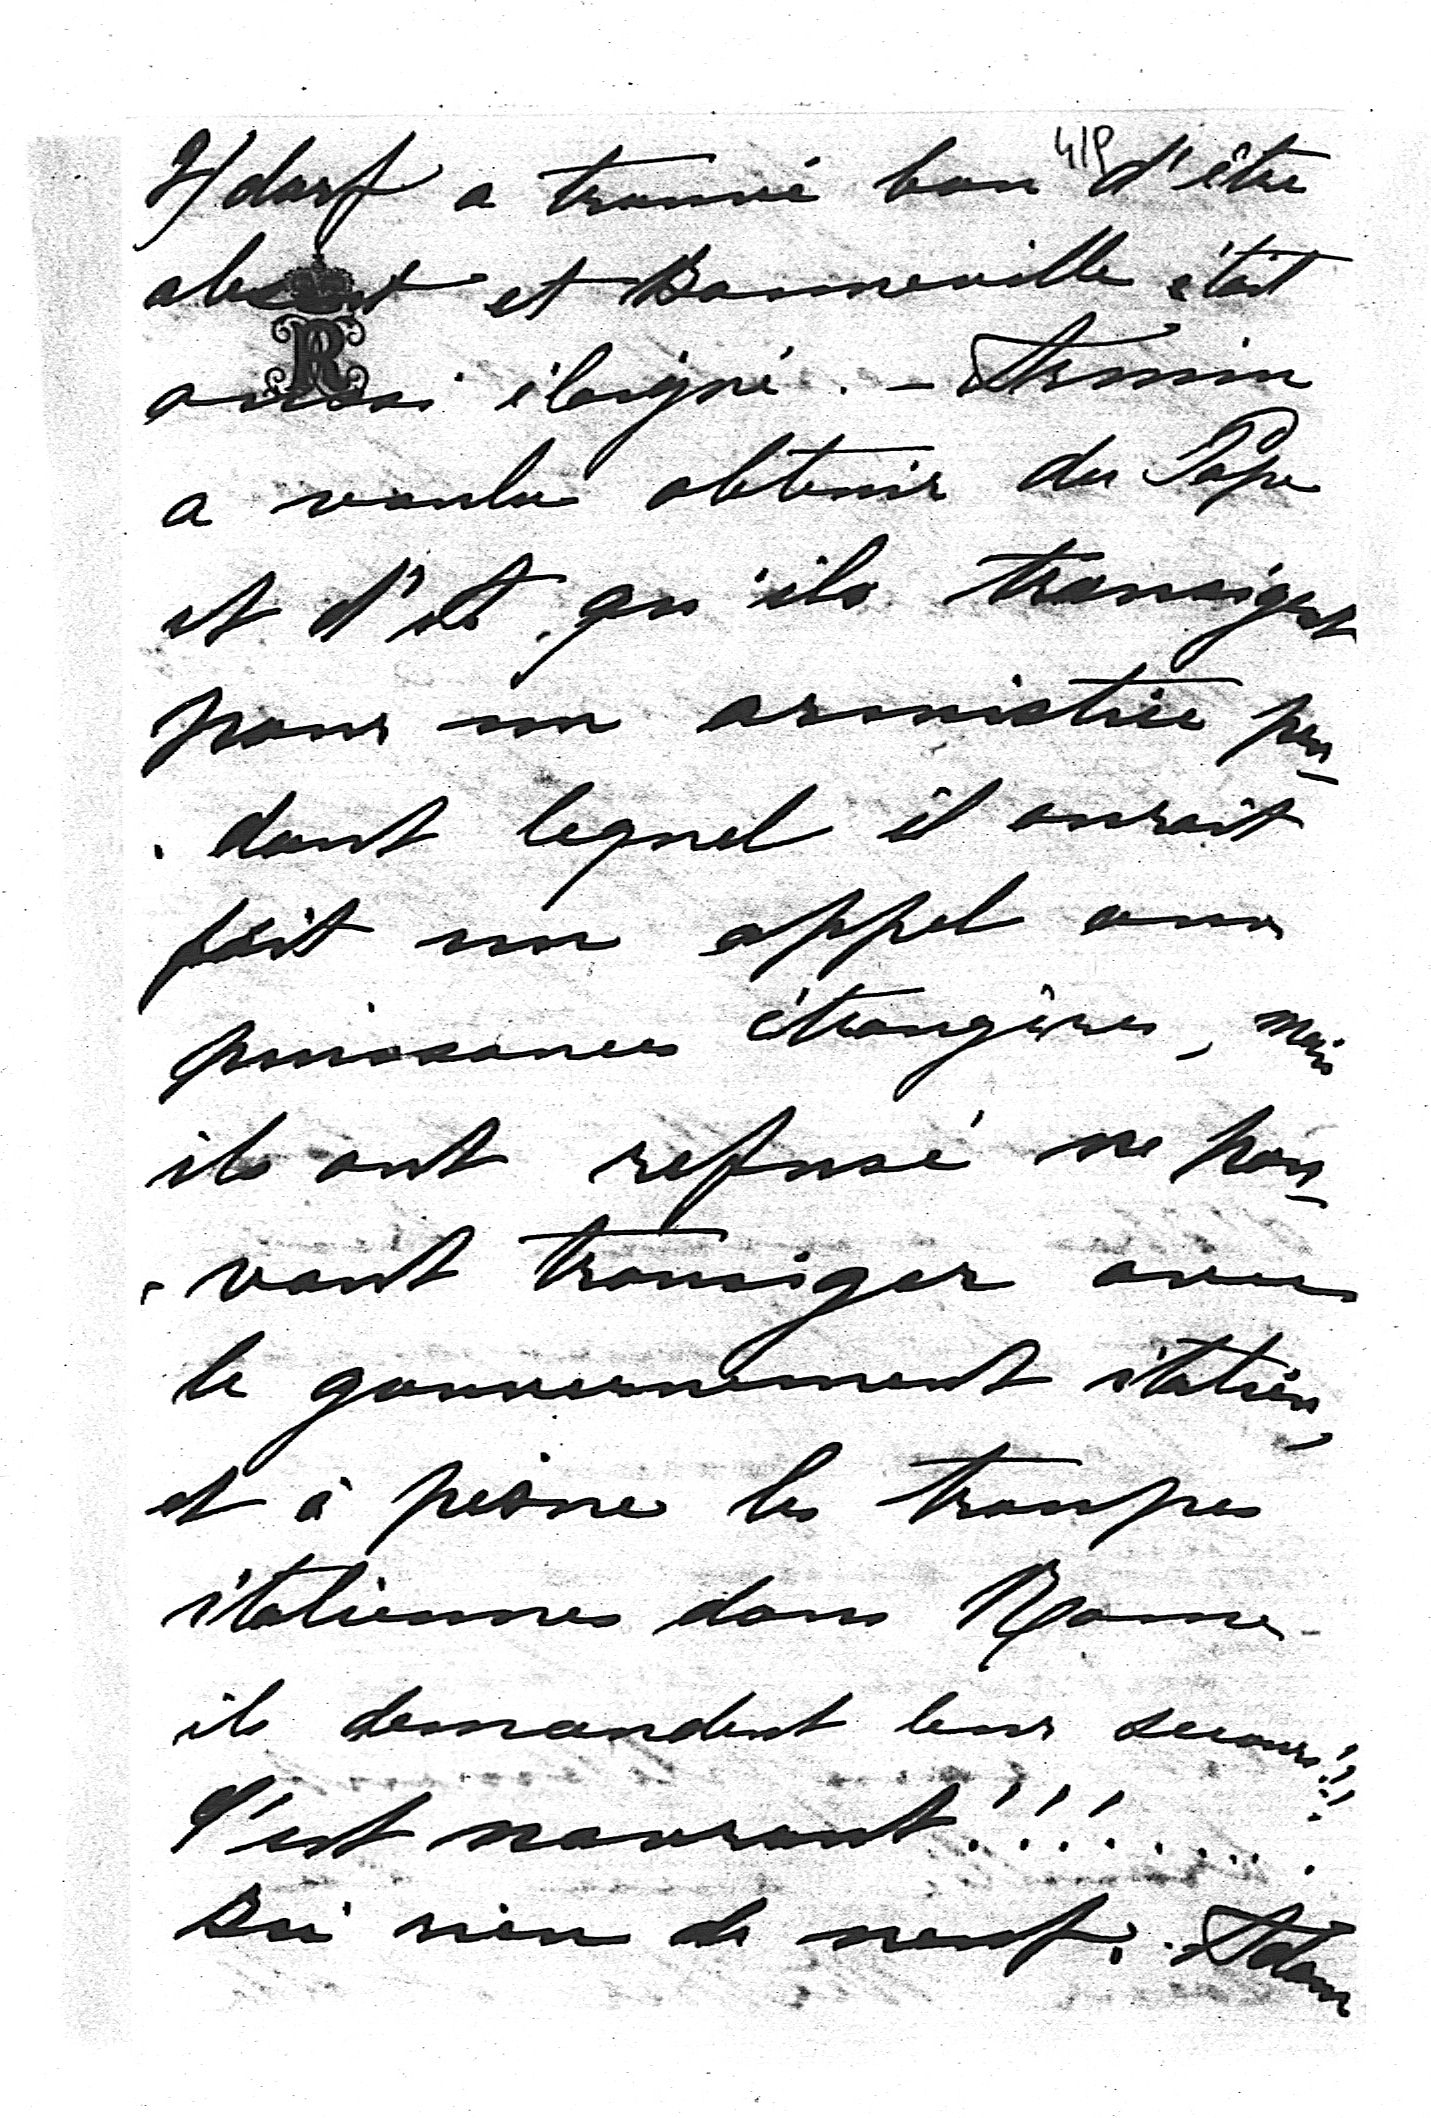 419
Hdorf a trouvé bon d'être
absent et Banneville était
aussi éloigné. – Arnim
a voulu obtenir du Pape
et d'Ant. qu'ils transigent
pour un armistice pen-
dant lequel il aurait
fait un appel aux
puissances étrangères, mais
ils ont refusé ne pou-
vant transiger avec
le gouvernement italien,
et à peine les troupes
italiennes dans Rome
ils demandent leur secours!!!
C'est navrant!!!.....
Ici rien de neuf. Adam
R